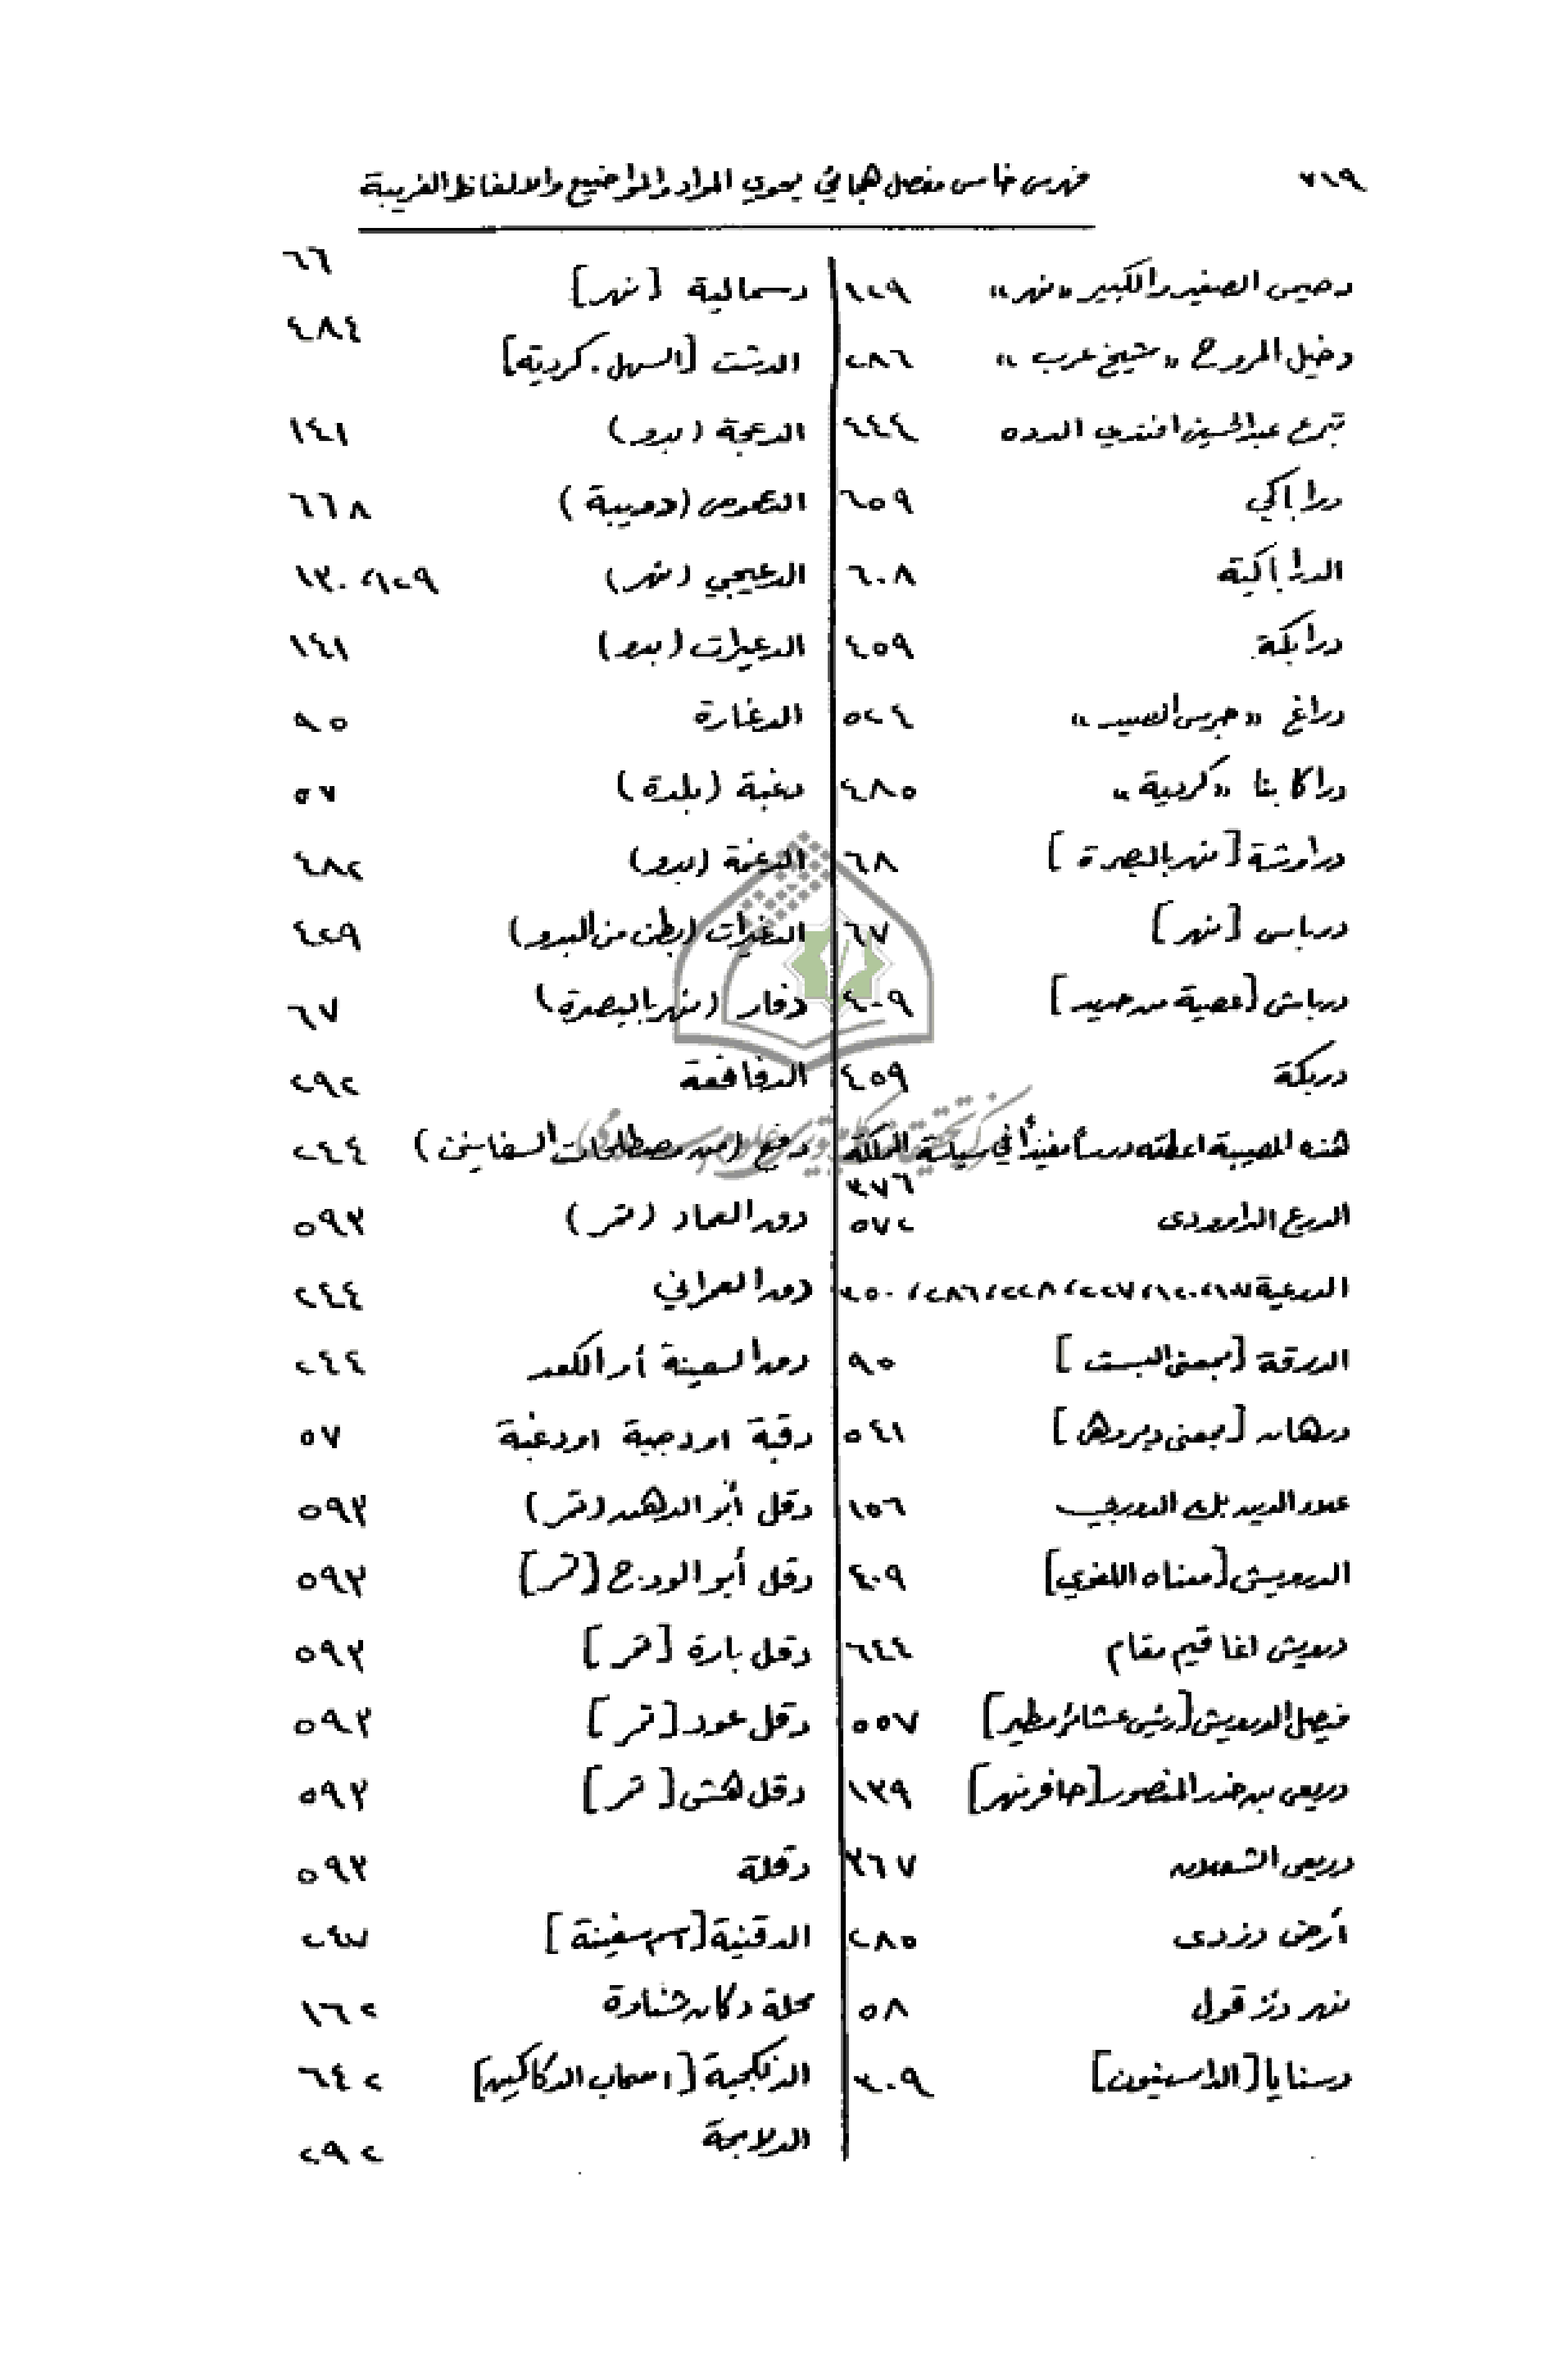 ٧١٩
فهرس خاس مفصل هجائي يحوي المواد والمواضيع والالفاظ الغريبة
دحيس الصغير والكبير «نهر» ١٢٩
دخيل المروح «شيخ عرب» ٢٨٦
تبرع عبدالحسين افندي الدده ٦٤٤
دراباكي ٦٥٩
الدراباكية ٦٠٨
درابكة ٤٥٩
دراغ «جرس الصيد» ٥٢٤
دراكابنا «كردية» ٤٨٥
دراوشة [نهر بالبصرة] ٦٨
درباس [نهر] ٦٧
درباش [عصية من حديد] ٤٠٩
دربكة ٤٥٩
هذه المصيبة اعطته درساً مفيداً في سياسة المملكة
٣٧٦
الدرع الداوودي ٥٧٢
الدرعية ١٨٧، ١٢٠، ٢٢٧، ٢٢٨، ٢٨٦، ٣٥٠
الدرقة [بمعنى البست] ٩٥
درهان [بمعنى ديروها] ٥٤١
علاء الدين بك الدروبي ١٥٦
الدرويش [معناه اللغوي] ٤٠٩
درويش اغا قيم مقام ٦٤٤
فيصل الدرويش [رئيس عشائر مطير] ٥٥٧
دريعي بن خنر المنصور [حافر نهر] ١٣٩
دريعي الشعلان ٣٦٧
أرض دزدي ٢٨٥
نهر دز قول ٥٨
دسنايا [الداسنيون] ٣٠٩
دسمالية [نهر] ٦٦
الدشت [السهل. كردية] ٤٨٤
الدعجة (بدو) ١٤١
الدعموص (دويبة) ٦٦٨
الدعيجي (نهر) ١٢٩، ١٣٠
الدعيرات (بدو) ١٤١
الدغارة ٩٥
دغبة (بلدة) ٥٧
الدغمة (بدو) ٤٨٢
الدغيرات (بطن من البدو) ٤٢٩
دفار (نهر بالبصرة) ٦٧
الدفافعة ٢٩٢
دفع (من مصطلحات السفاينن) ٢٤٤
دور العماد (تمر) ٥٩٣
دور العراني ٢٤٤
٢٤٤
دقبة او دجبة او دغبة ٥٧
دقل أبو الدهن (تمر) ٥٩٣
دقل أبو الودج [تمر] ٥٩٣
دقل بارة [تمر] ٥٩٣
دقل عود [تمر] ٥٩٣
دقل هشي [تمر] ٥٩٣
دقلة ٥٩٣
الدقنية [اسم سفينة] ٢٤٧
محلة دكان شناوة ١٦٢
الدنكجية [اصحاب الدكاكين] ٦٤٢
الدلابحة ٢٩٢